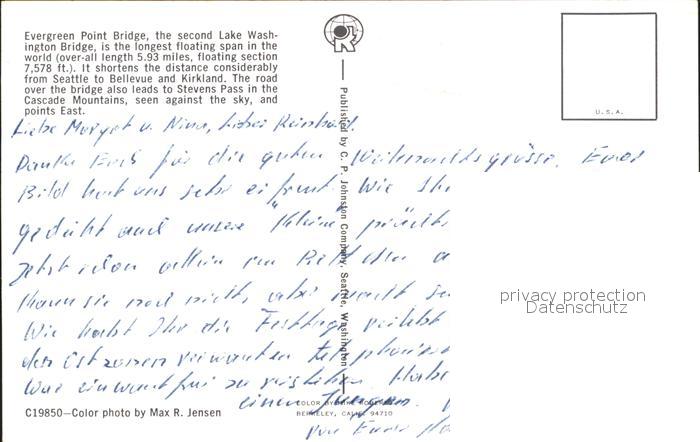 Evergreen Point Bridge, the second Lake Wash-
ington Bridge, is the longest floating span in the
world (over-all length 5.93 miles, floating section
7,578 ft.). It shortens the distance considerably
from Seattle to Bellevue and Kirkland. The road
over the bridge also leads to Stevens Pass in the
Cascade Mountains, seen against the sky, and
points East.
U.S.A.
Liebe Margot u. Nina, lieber Reinhard.
Danke Euch für die guten Weihnachtsgrüsse. Euer
Bild hat uns sehr erfreut. Wie Ihr
gedeiht auch unsere "Kleine"
jetzt schon allein im
kann sie noch nicht, aber macht
Wie habt Ihr die Festtage verlebt
den Ostzonen verwandten
war einwandfrei zu verstehen. Habe
einen
von Eurer
Published by C. P. Johnston Company, Seattle, Washington
privacy protection
Datenschutz
C19850—Color photo by Max R. Jensen
COLOR BY
BERKELEY, CALIF. 94710